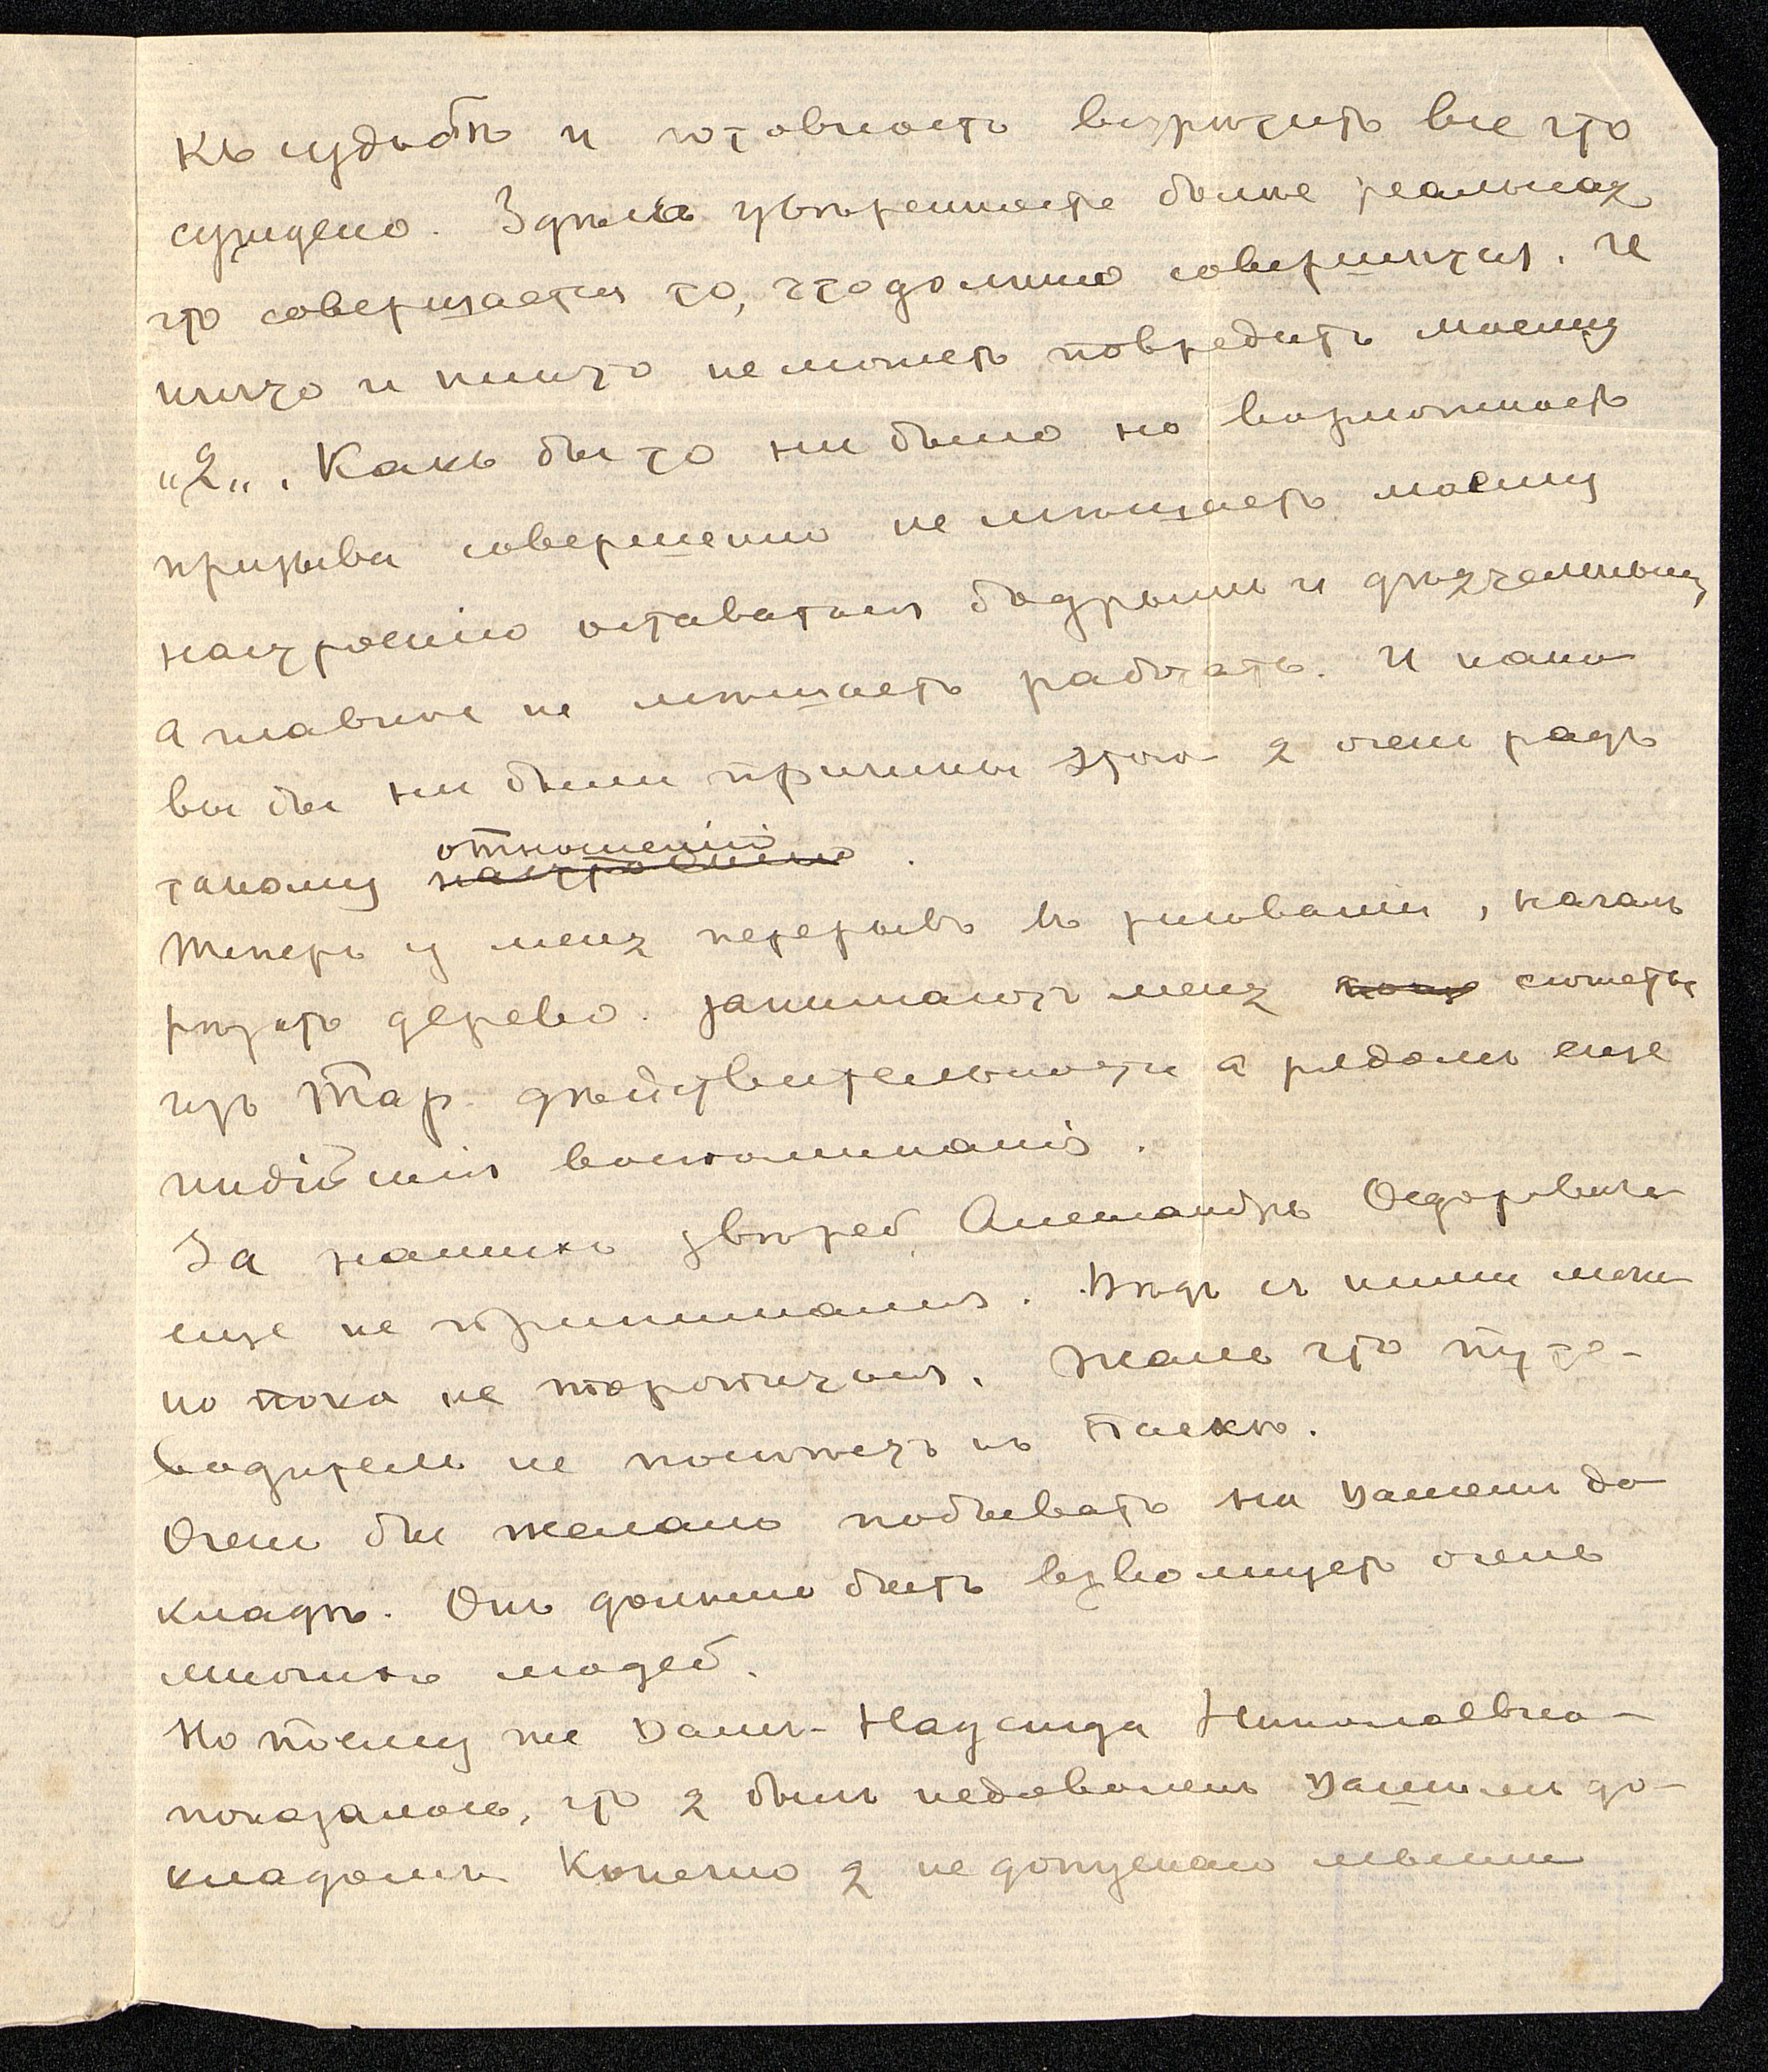 къ судьбѣ и готовность встрѣтить все что
суждено. Здѣсь увѣренность болѣе реальная
что совершается то, что должно совершиться. И
никто и ничто не можетъ повредить моему
„Я„. Какъ бы то ни было но возможность
призыва совершенно не мѣшаетъ моему
настроенію оставаться бодрымъ и дѣятельнымъ,
а главное не мѣшаетъ работать. И како
вы бы ни были причины этого я очень радъ
такому отношенію настроенію.
Теперь у меня перерывъ въ рисованіи, началъ
рѣзать дерево. Занимаютъ меня сюжеты
изъ Тар. дѣйствительности а рядомъ еще
индійскія воспоминанія.
За нашихъ звѣрей Александръ Федоровичъ
еще не принимался. Вѣдь съ ними мож
но пока не торопиться. Жаль что путе-
водитель не поспѣетъ къ Пасхѣ.
Очень бы желалъ побывать на Вашемъ до
кладѣ. Онъ должно быть взволнуетъ очень
многихъ людей.
Но почему же Вамъ- Надежда Николаевна-
показалось, что я былъ недоволенъ Вашимъ до-
кладомъ Конечно я не допускаю мысли